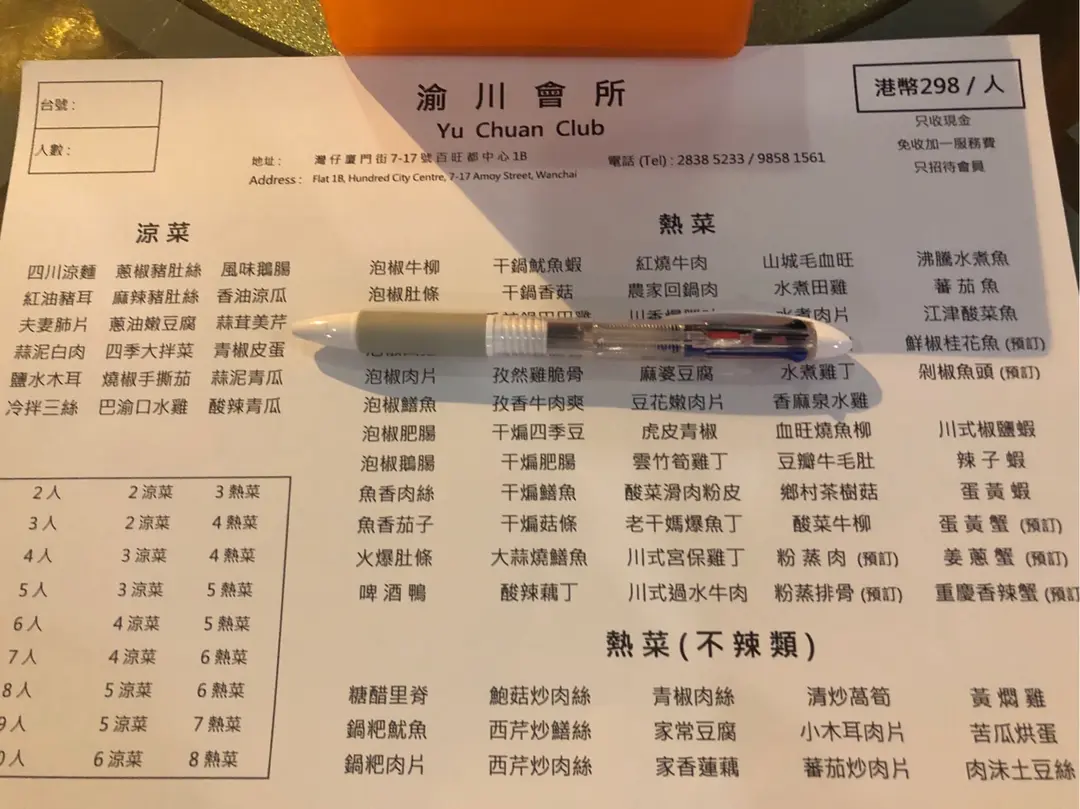 台號：
人數：
渝川會所
Yu Chuan Club
地址： 灣仔廈門街7-17號百旺都中心1B
Address : Flat 1B, Hundred City Centre, 7-17 Amoy Street, Wanchai
電話 (Tel) : 2838 5233 / 9858 1561
港幣298 / 人
只收現金
免收加一服務費
只招待會員
涼菜
四川涼麵 蔥椒豬肚絲 風味鵝腸
紅油豬耳 麻辣豬肚絲 香油涼瓜
夫妻肺片 蔥油嫩豆腐 蒜茸美芹
蒜泥白肉 四季大拌菜 青椒皮蛋
鹽水木耳 燒椒手撕茄 蒜泥青瓜
冷拌三絲 巴渝口水雞 酸辣青瓜
2人 2涼菜 3熱菜
3人 2涼菜 4熱菜
4人 3涼菜 4熱菜
5人 3涼菜 5熱菜
6人 4涼菜 5熱菜
7人 4涼菜 6熱菜
8人 5涼菜 6熱菜
9人 5涼菜 7熱菜
0人 6涼菜 8熱菜
熱菜
泡椒牛柳 干鍋魷魚蝦 紅燒牛肉 山城毛血旺 沸騰水煮魚
泡椒肚條 干鍋香菇 農家回鍋肉 水煮田雞 蕃茄魚
水煮肉片 江津酸菜魚
鮮椒桂花魚 (預訂)
泡椒肉片 孜然雞脆骨 麻婆豆腐 水煮雞丁 剁椒魚頭 (預訂)
泡椒鱔魚 孜香牛肉爽 豆花嫩肉片 香麻泉水雞
泡椒肥腸 干煸四季豆 虎皮青椒 血旺燒魚柳 川式椒鹽蝦
泡椒鵝腸 干煸肥腸 雲竹筍雞丁 豆瓣牛毛肚 辣子蝦
魚香肉絲 干煸鱔魚 酸菜滑肉粉皮 鄉村茶樹菇 蛋黃蝦
魚香茄子 干煸菇條 老干媽爆魚丁 酸菜牛柳 蛋黃蟹 (預訂)
火爆肚條 大蒜燒鱔魚 川式宮保雞丁 粉蒸肉 (預訂) 姜蔥蟹 (預訂)
啤酒鴨 酸辣藕丁 川式過水牛肉 粉蒸排骨 (預訂) 重慶香辣蟹 (預訂
熱菜(不辣類)
糖醋里脊 鮑菇炒肉絲 青椒肉絲 清炒萵筍 黃燜雞
鍋粑魷魚 西芹炒鱔絲 家常豆腐 小木耳肉片 苦瓜烘蛋
鍋粑肉片 西芹炒肉絲 家香蓮藕 蕃茄炒肉片 肉沬土豆絲